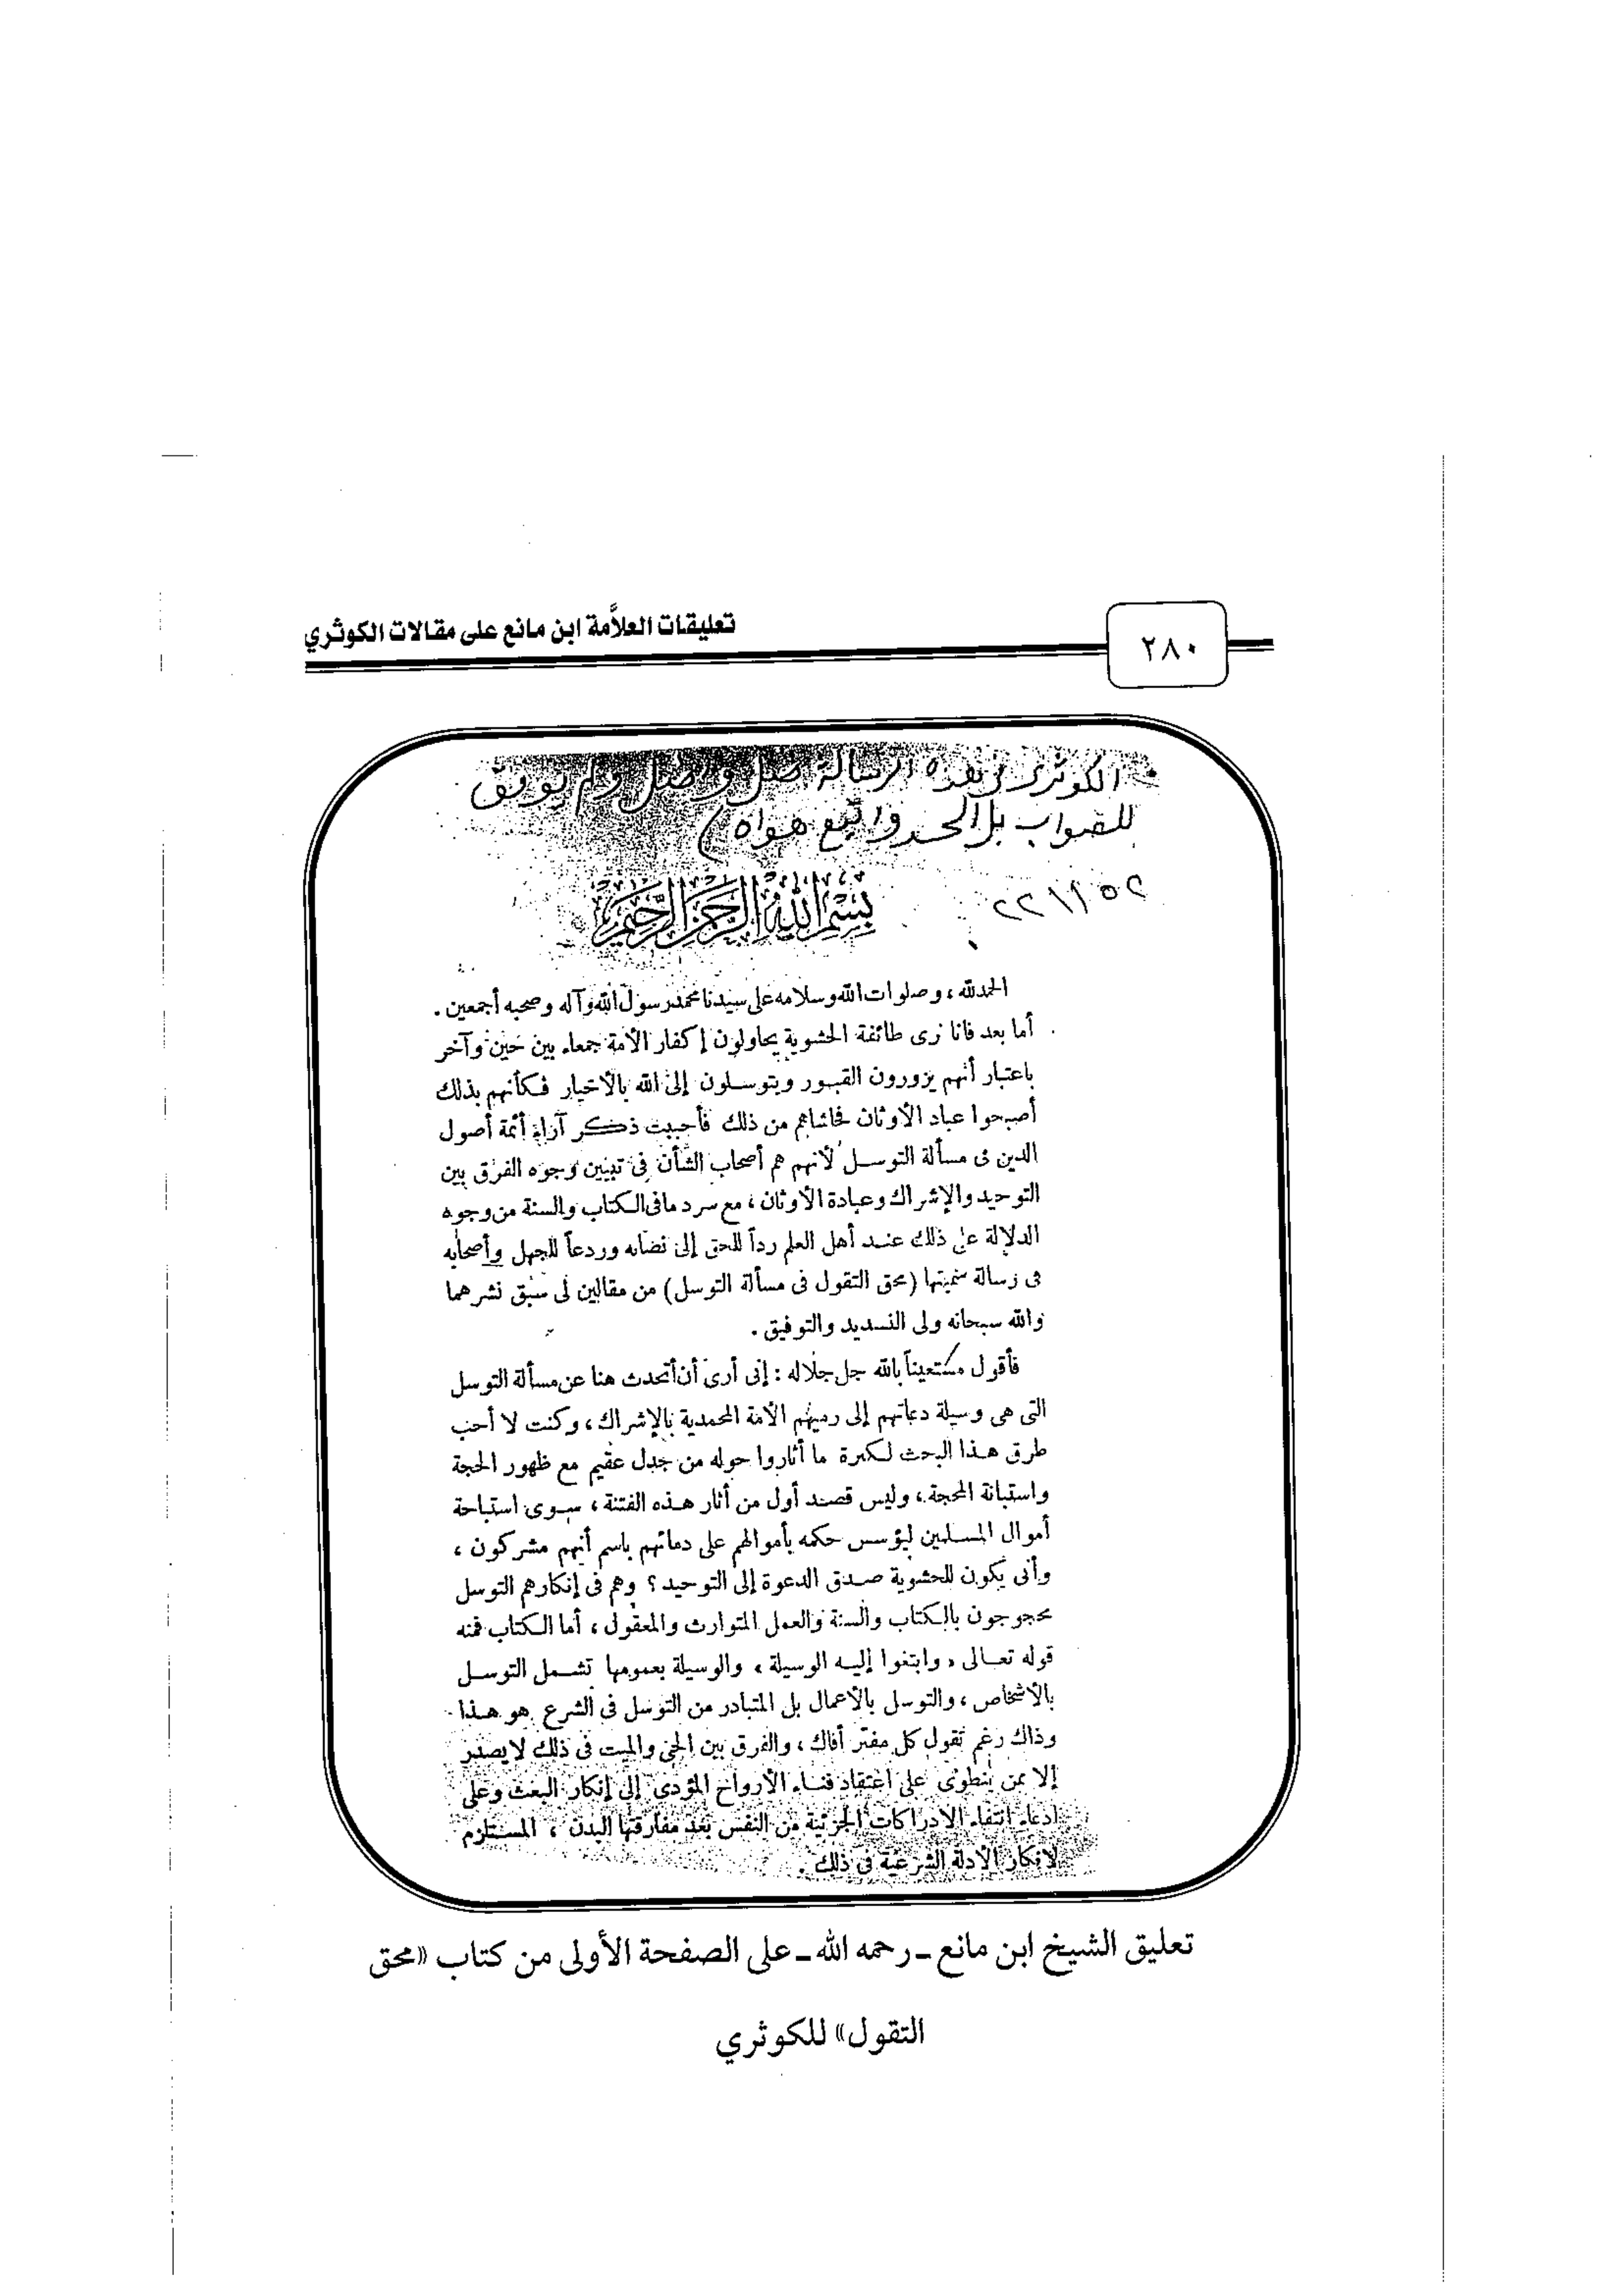 تعليقات العلاَّمة ابن مانع على مقالات الكوثري
٢٨٠
الكوثري في هذه الرسالة ضل وأضل ولم يوفق
للصواب بل الحد واتبع هواه)
بسم الله الرحمن الرحيم
الحمد لله ، وصلوات الله وسلامه على سيدنا محمد رسول الله وآله وصحبه أجمعين .
أما بعد فانا نرى طائفة الحشوية يحاولون إكفار الأمة جمعاء بين حين وآخر
باعتبار أنهم يزورون القبور ويتوسلون إلى الله بالأخيار فكأنهم بذلك
أصبحوا عباد الأوثان فحاشاهم من ذلك فأحببت ذكر آراء أئمة أصول
الدين فى مسألة التوسل لأنهم هم أصحاب الشأن فى تبيين وجوه الفرق بين
التوحيد والإشراك وعبادة الأوثان ، مع سرد ما فى الكتاب والسنة من وجوه
الدلالة على ذلك عند أهل العلم رداً للحق إلى نصابه وردعاً للجهل وأصحابه
فى رسالة سميتها (محق التقول فى مسألة التوسل) من مقالين لى سبق نشرهما
والله سبحانه ولى التسديد والتوفيق .
فأقول مستعيناً بالله جل جلاله : إنى أرى أن أتحدث هنا عن مسألة التوسل
التى هى وسيلة دعاتهم إلى رميهم الأمة المحمدية بالإشراك ، وكنت لا أحب
طرق هذا البحث لكثرة ما أثاروا حوله من جدل عقيم مع ظهور الحجة
واستبانة المحجة ، وليس قصد أول من أثار هذه الفتنة ، سوى استباحة
أموال المسلمين ليؤسس حكمه بأموالهم على دمائهم باسم أنهم مشركون ،
وأنى يكون للحشوية صدق الدعوة إلى التوحيد ؟ وهم فى إنكارهم التوسل
محجوجون بالكتاب والسنة والعمل المتوارث والمعقول ، أما الكتاب فمنه
قوله تعالى « وابتغوا إليه الوسيلة » والوسيلة بعمومها تشمل التوسل
بالأشخاص ، والتوسل بالأعمال بل المتبادر من التوسل فى الشرع هو هذا
وذاك رغم تقول كل مفتر أفاك ، والفرق بين الحى والميت فى ذلك لا يصدر
إلا ممن ينطوى على اعتقاد فناء الأرواح المؤدى إلى إنكار البعث وعلى
ادعاء انتفاء الادراكات الجزئية من النفس بعد مفارقتها البدن ، المستلزم
لانكار الأدلة الشرعية فى ذلك .
تعليق الشيخ ابن مانع ـ رحمه الله ـ على الصفحة الأولى من كتاب «محق
التقول» للكوثري